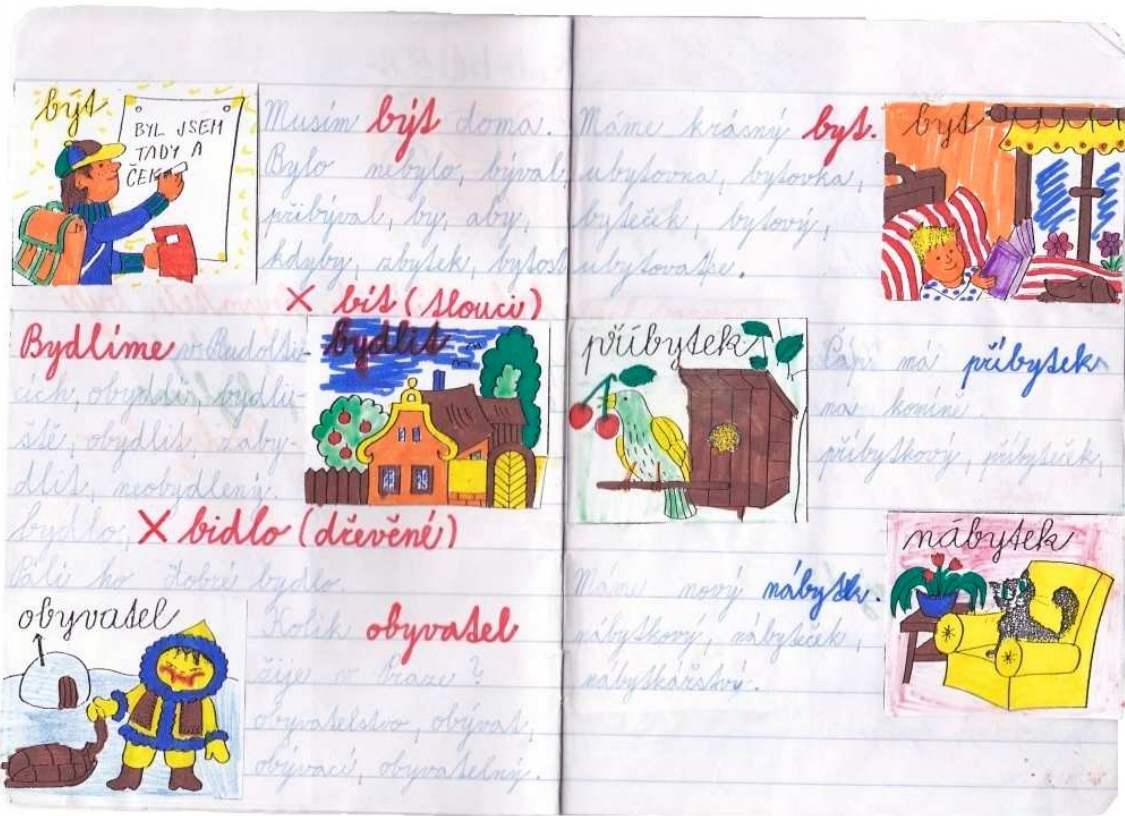 být
BYL JSEM
TADY A
ČEK
Musím být doma.
Bylo nebylo, býval,
přibýval, by, aby,
kdyby, zbytek, bytost
× bít (tlouci)
Bydlíme v Rudolti-
cích, obydlí, bydli-
ště, obydlit, zaby-
dlit, neobydlený.
bydlo, × bidlo (dřevěné)
Pálí ho dobré bydlo.
bydlit
obyvatel
Kolik obyvatel
žije v Praze?
obyvatelstvo, obývat,
obývací, obyvatelný.
Máme krásný byt.
ubytovna, bytovka,
byteček, bytový,
ubytovat se.
byt
příbytek
Čáp má příbytek
na komíně.
příbytkový, příbyteček,
Máme nový nábytek.
nábytkový, nábyteček,
nábytkářství.
nábytek